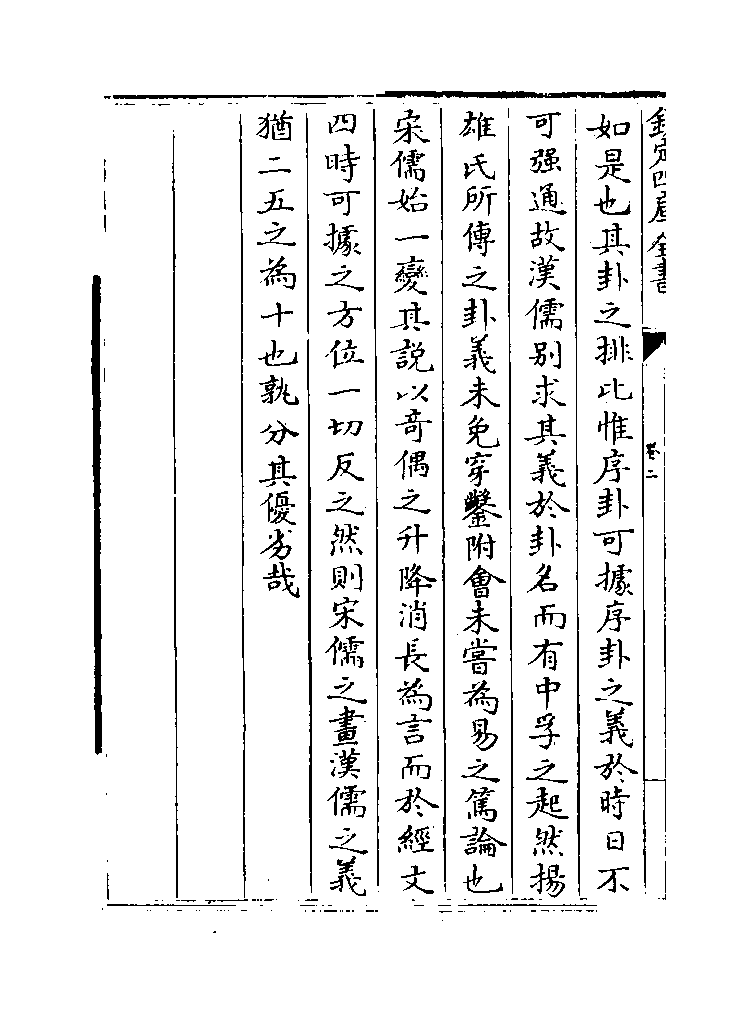 欽定四庫全書
卷二
如是也其卦之排比惟序卦可據序卦之義於時日不
可强通故漢儒别求其義於卦名而有中孚之起然揚
雄氏所傳之卦義未免穿鑿附㑹未嘗為易之篤論也
宋儒始一變其説以竒偶之升降消長為言而於經文
四時可據之方位一切反之然則宋儒之畫漢儒之義
猶二五之為十也孰分其優劣哉